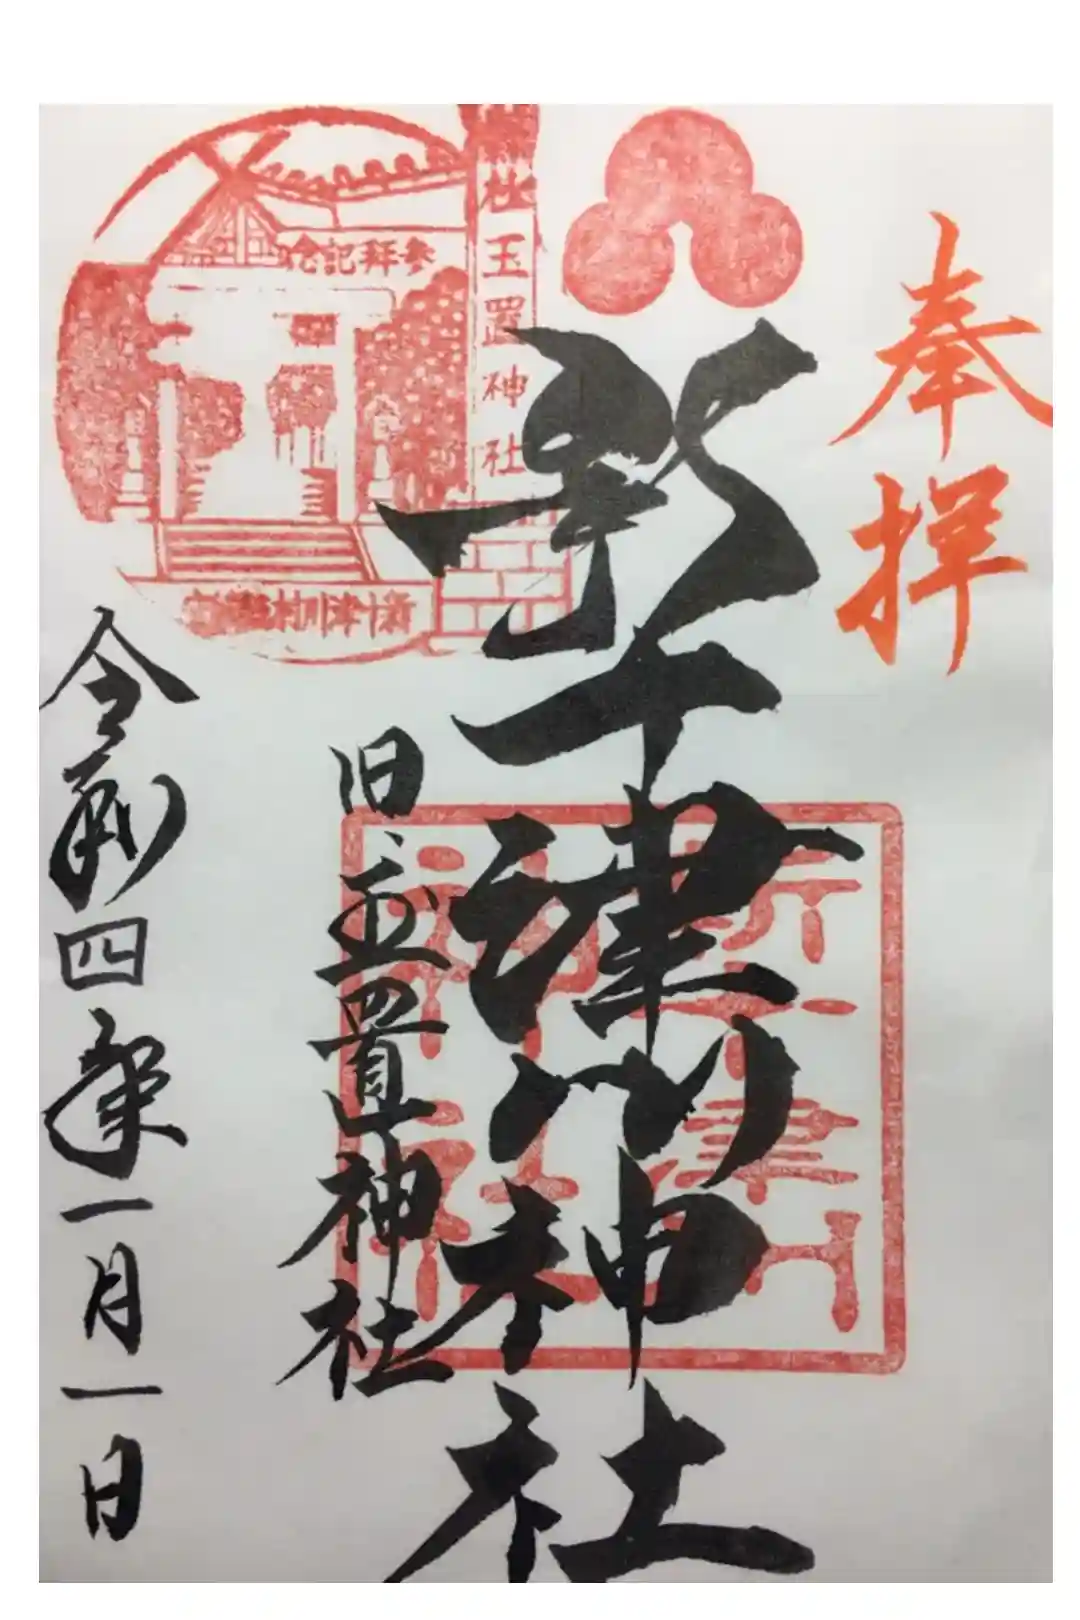 奉拝
新十津川神社
旧玉置神社
令和四年一月一日
社玉置神社
参拝記念
新十津川村
新十津川